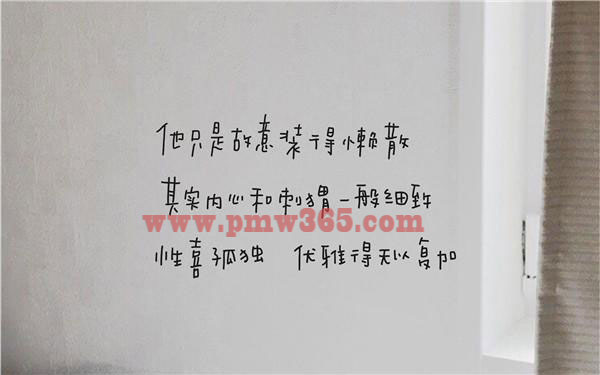 他只是故意装得懒散
其实内心和刺猬一般细致
www.pmw365.com
性喜孤独 优雅得无以复加